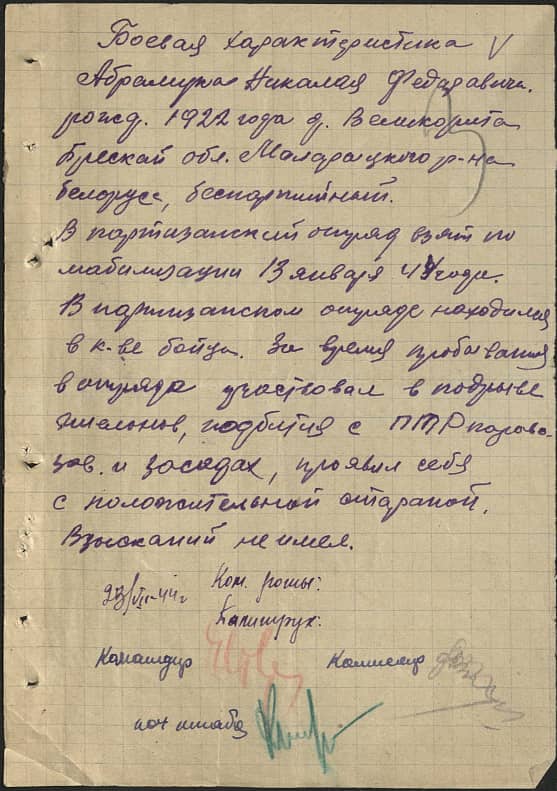 Боевая характеристика V
Абрамука Николая Федаравича.
рожд. 1922 года д. Великорита
Брескай обл. Маларацкого р-на
белорус, беспартийный.
В партизанский отряд взят по
мабилизации 13 января 44 года.
В партизанском отряде находился
в к-ве бойца. За время пробывания
в отряде участвовал в подрыве
эшелонов, подбития с ПТР парово-
зов. и засадах, проявил себя
с положительной стараной.
Взысканий не имел.
23/VII-44 г Ком. роты:
Политрук:
Командир Комиссар
нач штаба